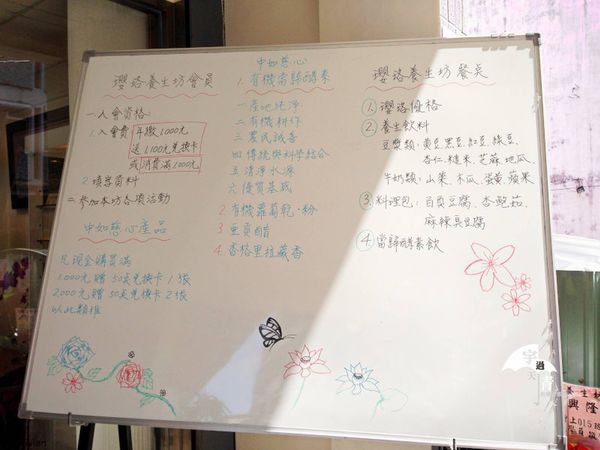 瓔珞養生坊會員
一入會資格:
1.入會費 年繳1000元
送1100元兌換卡
或消費滿1000元
2.填寫資料
二參加本坊各項活動
中如慈心產品
兌現金購買滿
1000元贈50点兌換卡1張
2000元贈50点兌換卡2張
以此類推
中如慈心
1.有機當歸酵素
一產地純淨
二有機耕作
三農民誠善
四傳統與科學結合
五清淨水源
六優質基碱
2有機蘿蔔乾・粉
3皇頁醋
4香格里拉藏香
瓔珞養生坊餐桌
①瓔珞優格
②養生飲料
豆漿類:黃豆黑豆、紅豆、綠豆、
杏仁、糙米、芝麻、地瓜、
牛奶類:山藥、木瓜、蛋黃、蘋果
③料理包:百頁豆腐、杏鮑菇、
麻辣臭豆腐
④當歸酵素飲
宇
過
天
養生
興隆